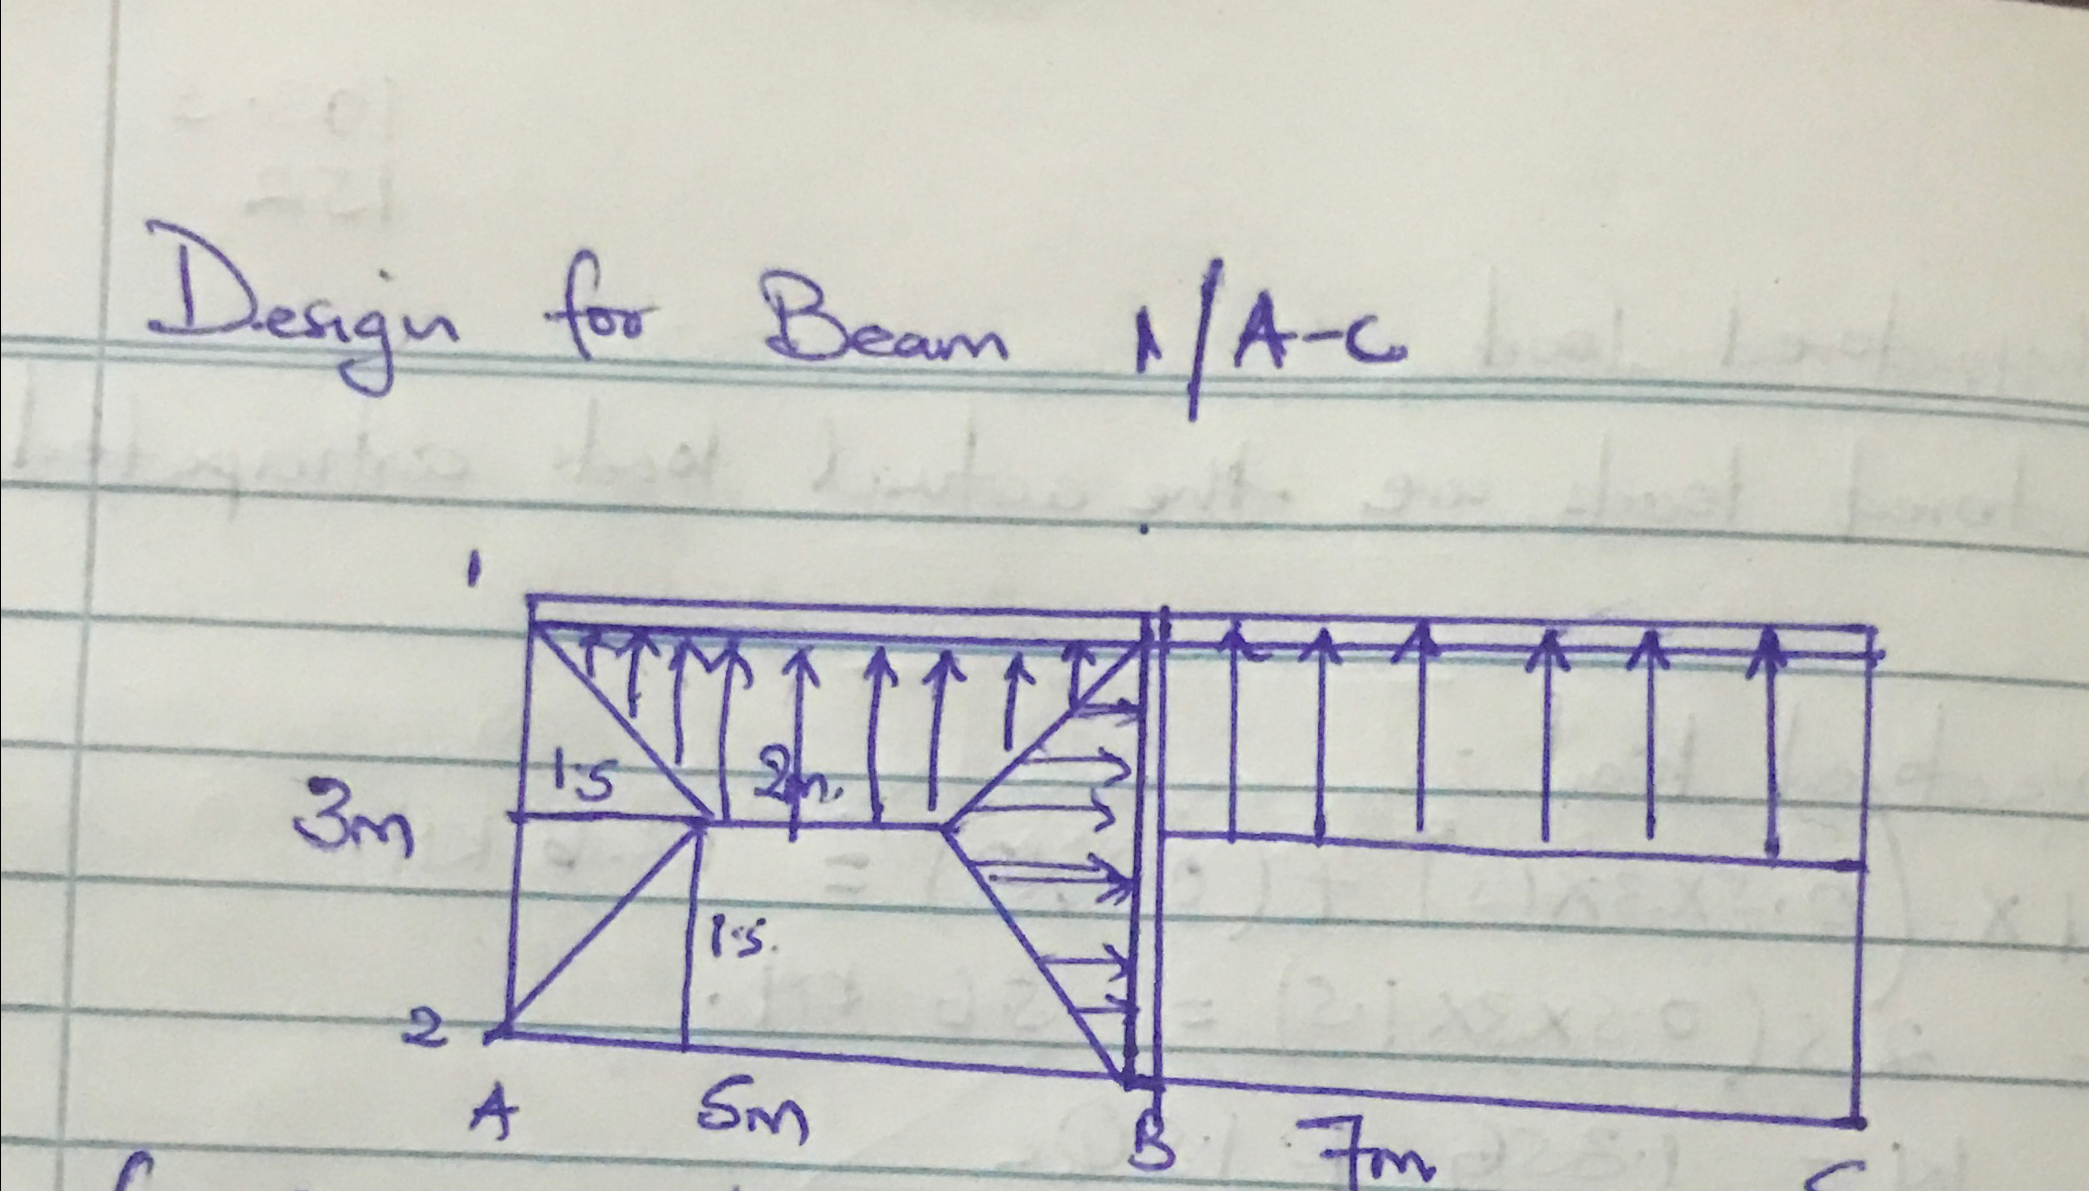 Design for Beam 1/A-C
1
1.5 2m.
3m
1.5.
2
A 5m B 7m C